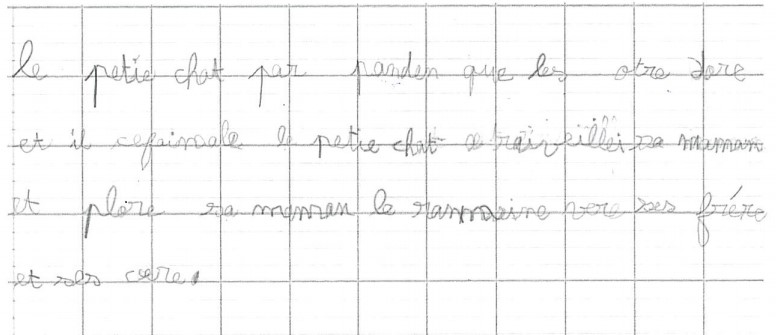 le petie chat par panden que les otre dore
et il cefaimale le petie chat a traiveillei sa maman
et plore sa maman le rammeine vere ses frére
et ses cere.